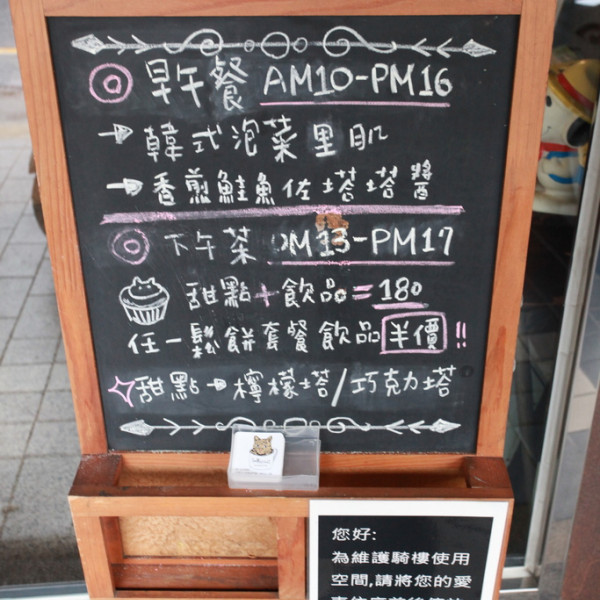 早午餐 AM10-PM16
韓式泡菜里肌
香煎鮭魚佐塔塔醬
下午茶 PM13-PM17
甜點+飲品=180
任一鬆餅套餐飲品半價!!
甜點→檸檬塔/巧克力塔
您好:
為維護騎樓使用
空間,請將您的愛